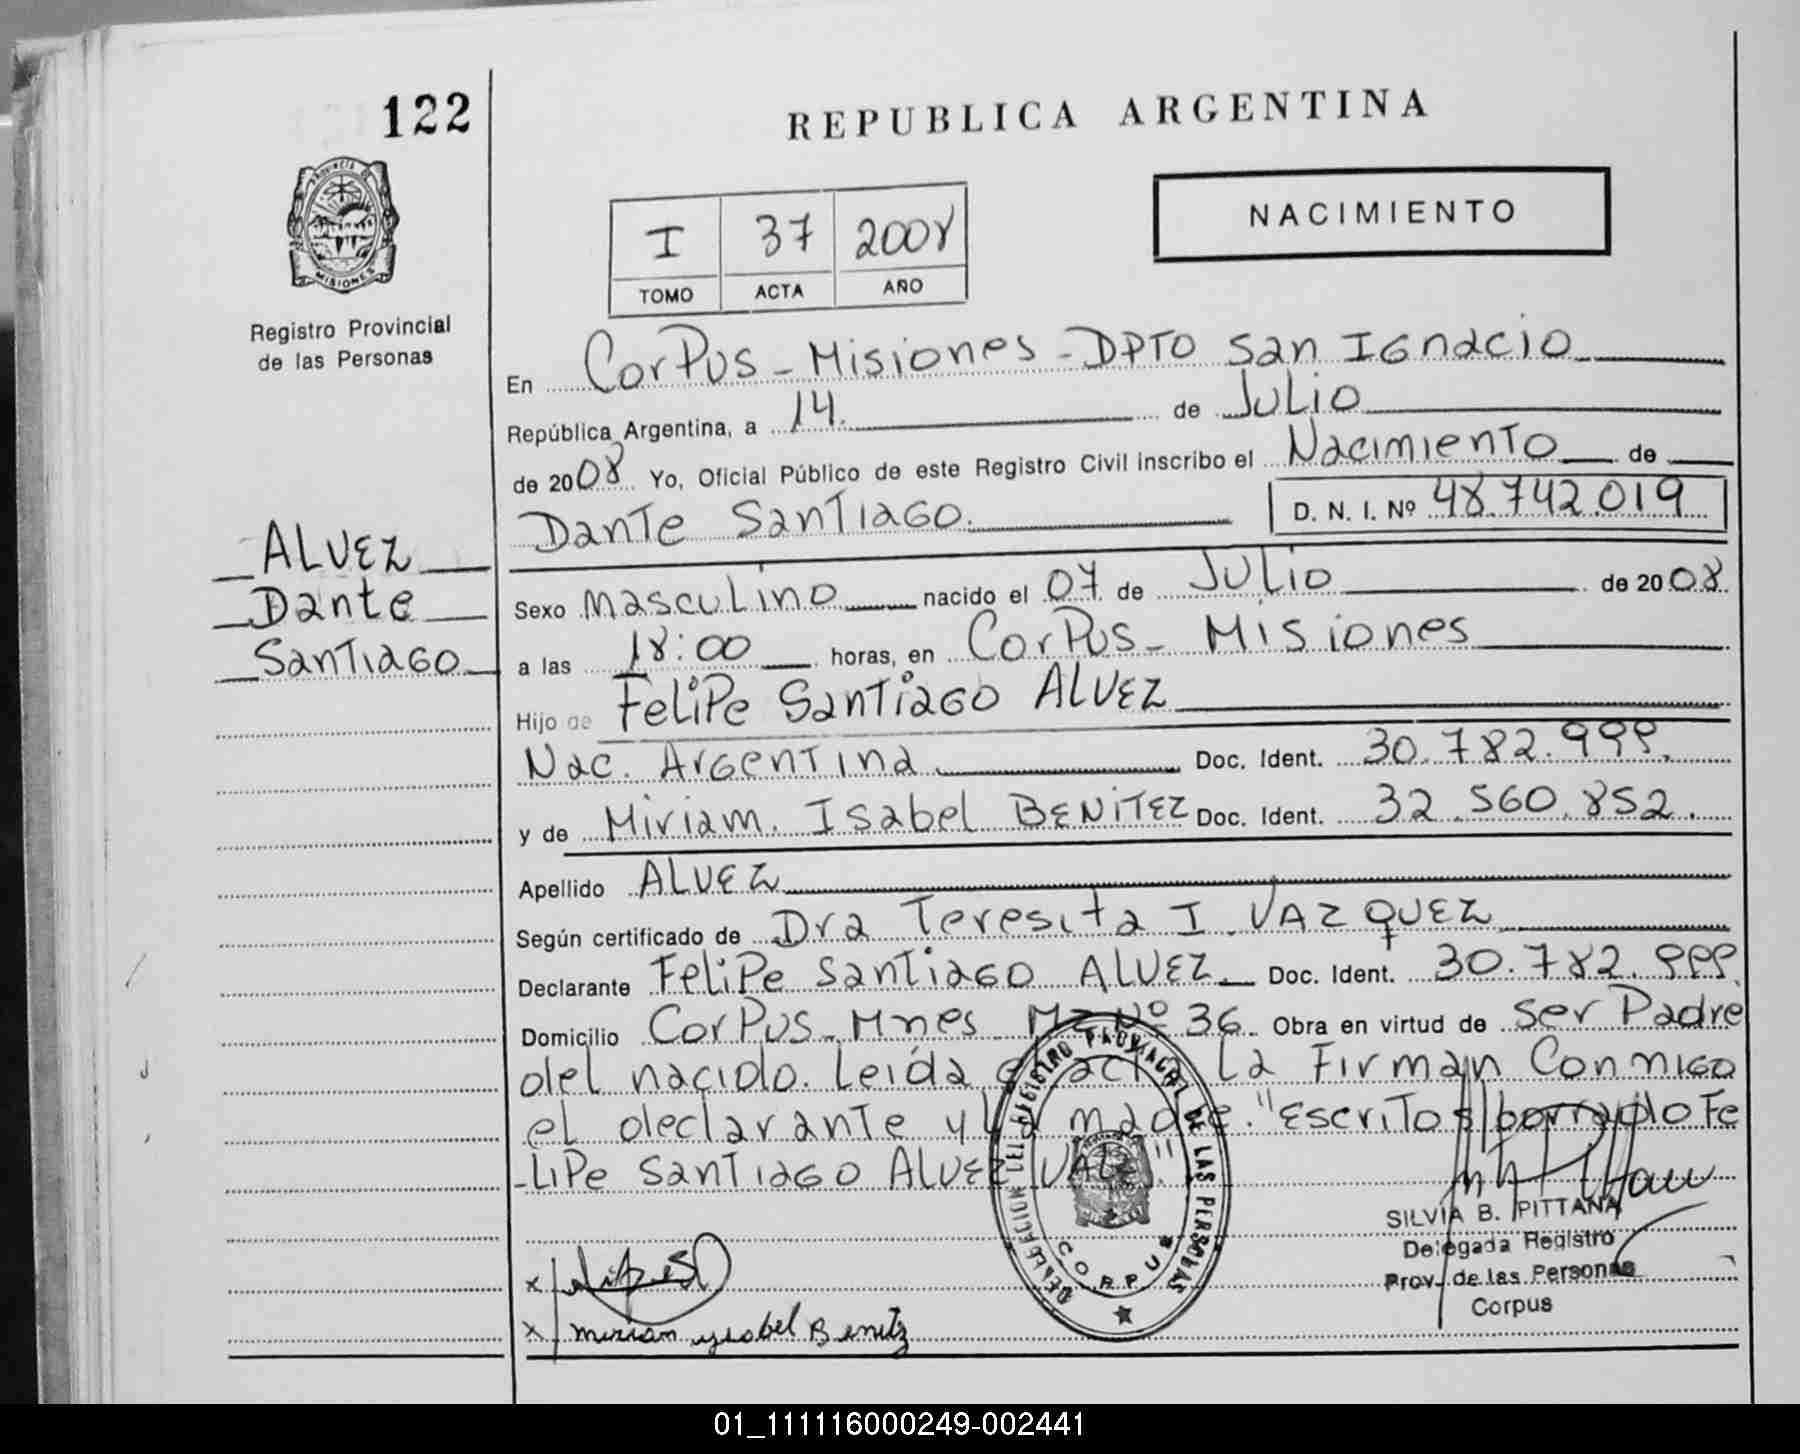 122
REPUBLICA ARGENTINA
PROVINCIA DE
MISIONES
Registro Provincial
de las Personas
I 37 2008
TOMO ACTA AÑO
NACIMIENTO
En Corpus - Misiones - DPTO San Ignacio
República Argentina, a 14. de Julio
de 2008 Yo, Oficial Público de este Registro Civil inscribo el Nacimiento de
Dante Santiago. D. N. I. Nº 48.742.019
ALVEZ
Dante
Santiago
Sexo Masculino nacido el 07 de Julio de 2008.
a las 18:00 horas, en Corpus - Misiones
Hijo de Felipe Santiago ALVEZ
Nac. Argentina Doc. Ident. 30.782.999.
y de Miriam. Isabel BENITEZ Doc. Ident. 32.560.852.
Apellido ALVEZ
Según certificado de Dra Teresita I. VAZQUEZ
Declarante Felipe Santiago ALVEZ Doc. Ident. 30.782.999.
Domicilio Corpus - Mnes Mz Nº 36 Obra en virtud de ser Padre
del nacido. Leída el acta La Firman Conmigo
el declarante y la madre. "Escrito s/borrado Fe
-Lipe Santiago ALVEZ VALE"
DELEGACION DEL REGISTRO PROVINCIAL DE LAS PERSONAS
CORPUS
SILVIA B. PITTANA
Delegada Registro
Prov. de las Personas
Corpus
x
x Miriam ysabel Benitz
01_111116000249-002441